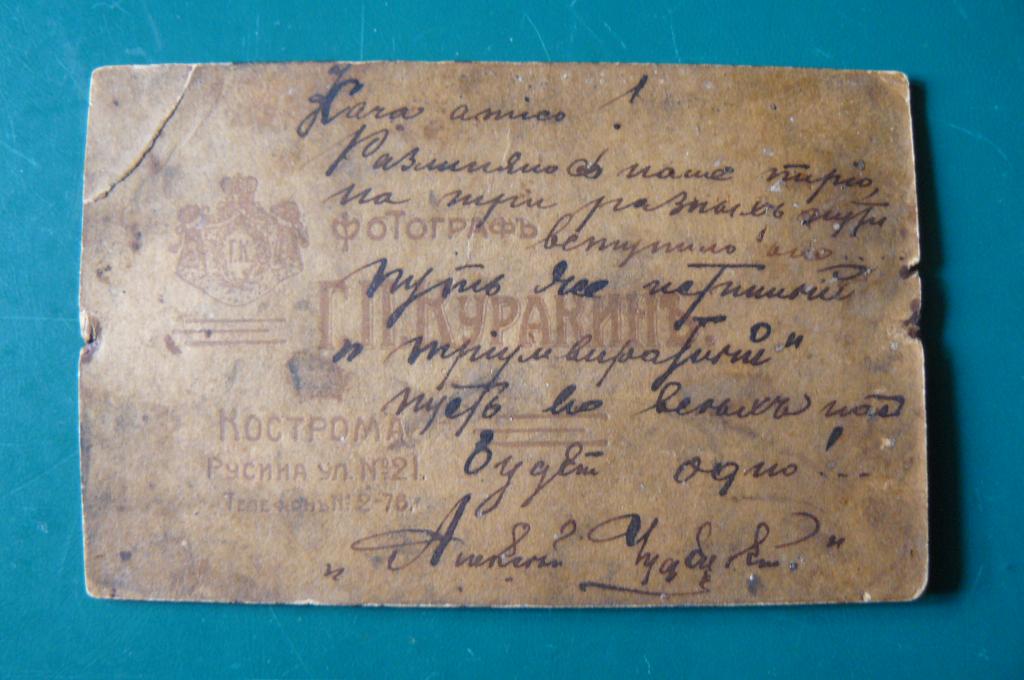 Cara amico!
Разлилялось наше трiо,
на три разныхъ пути
вступило оно...
Путь же истинный
„трiумвиратный"
пусть во всѣхъ насъ
будетъ одно!...
„Алексѣй
ГК
ФОТОГРАФЪ
Г.П. КУРАКИНЪ.
КОСТРОМА
РУСИНА УЛ. №21.
ТЕЛЕФОНЪ № 2-76.